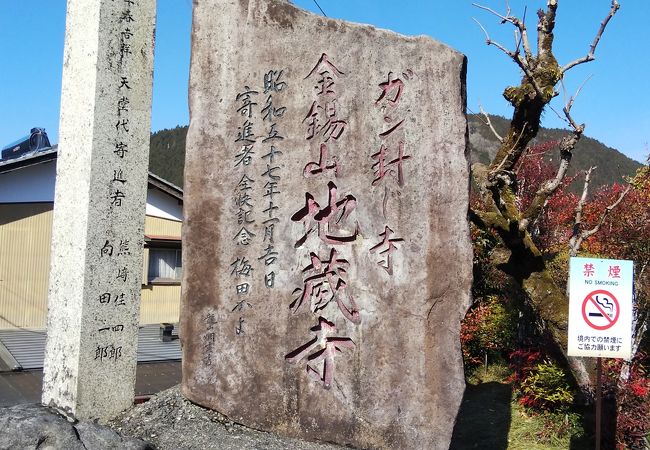 ガン封じ寺
金錫山地蔵寺
昭和五十七年十一月吉日
寄進者 全快記念 梅田
天堂代寄進者
向田一郎
禁煙
NO SMOKING
境内での禁煙に
ご協力願います